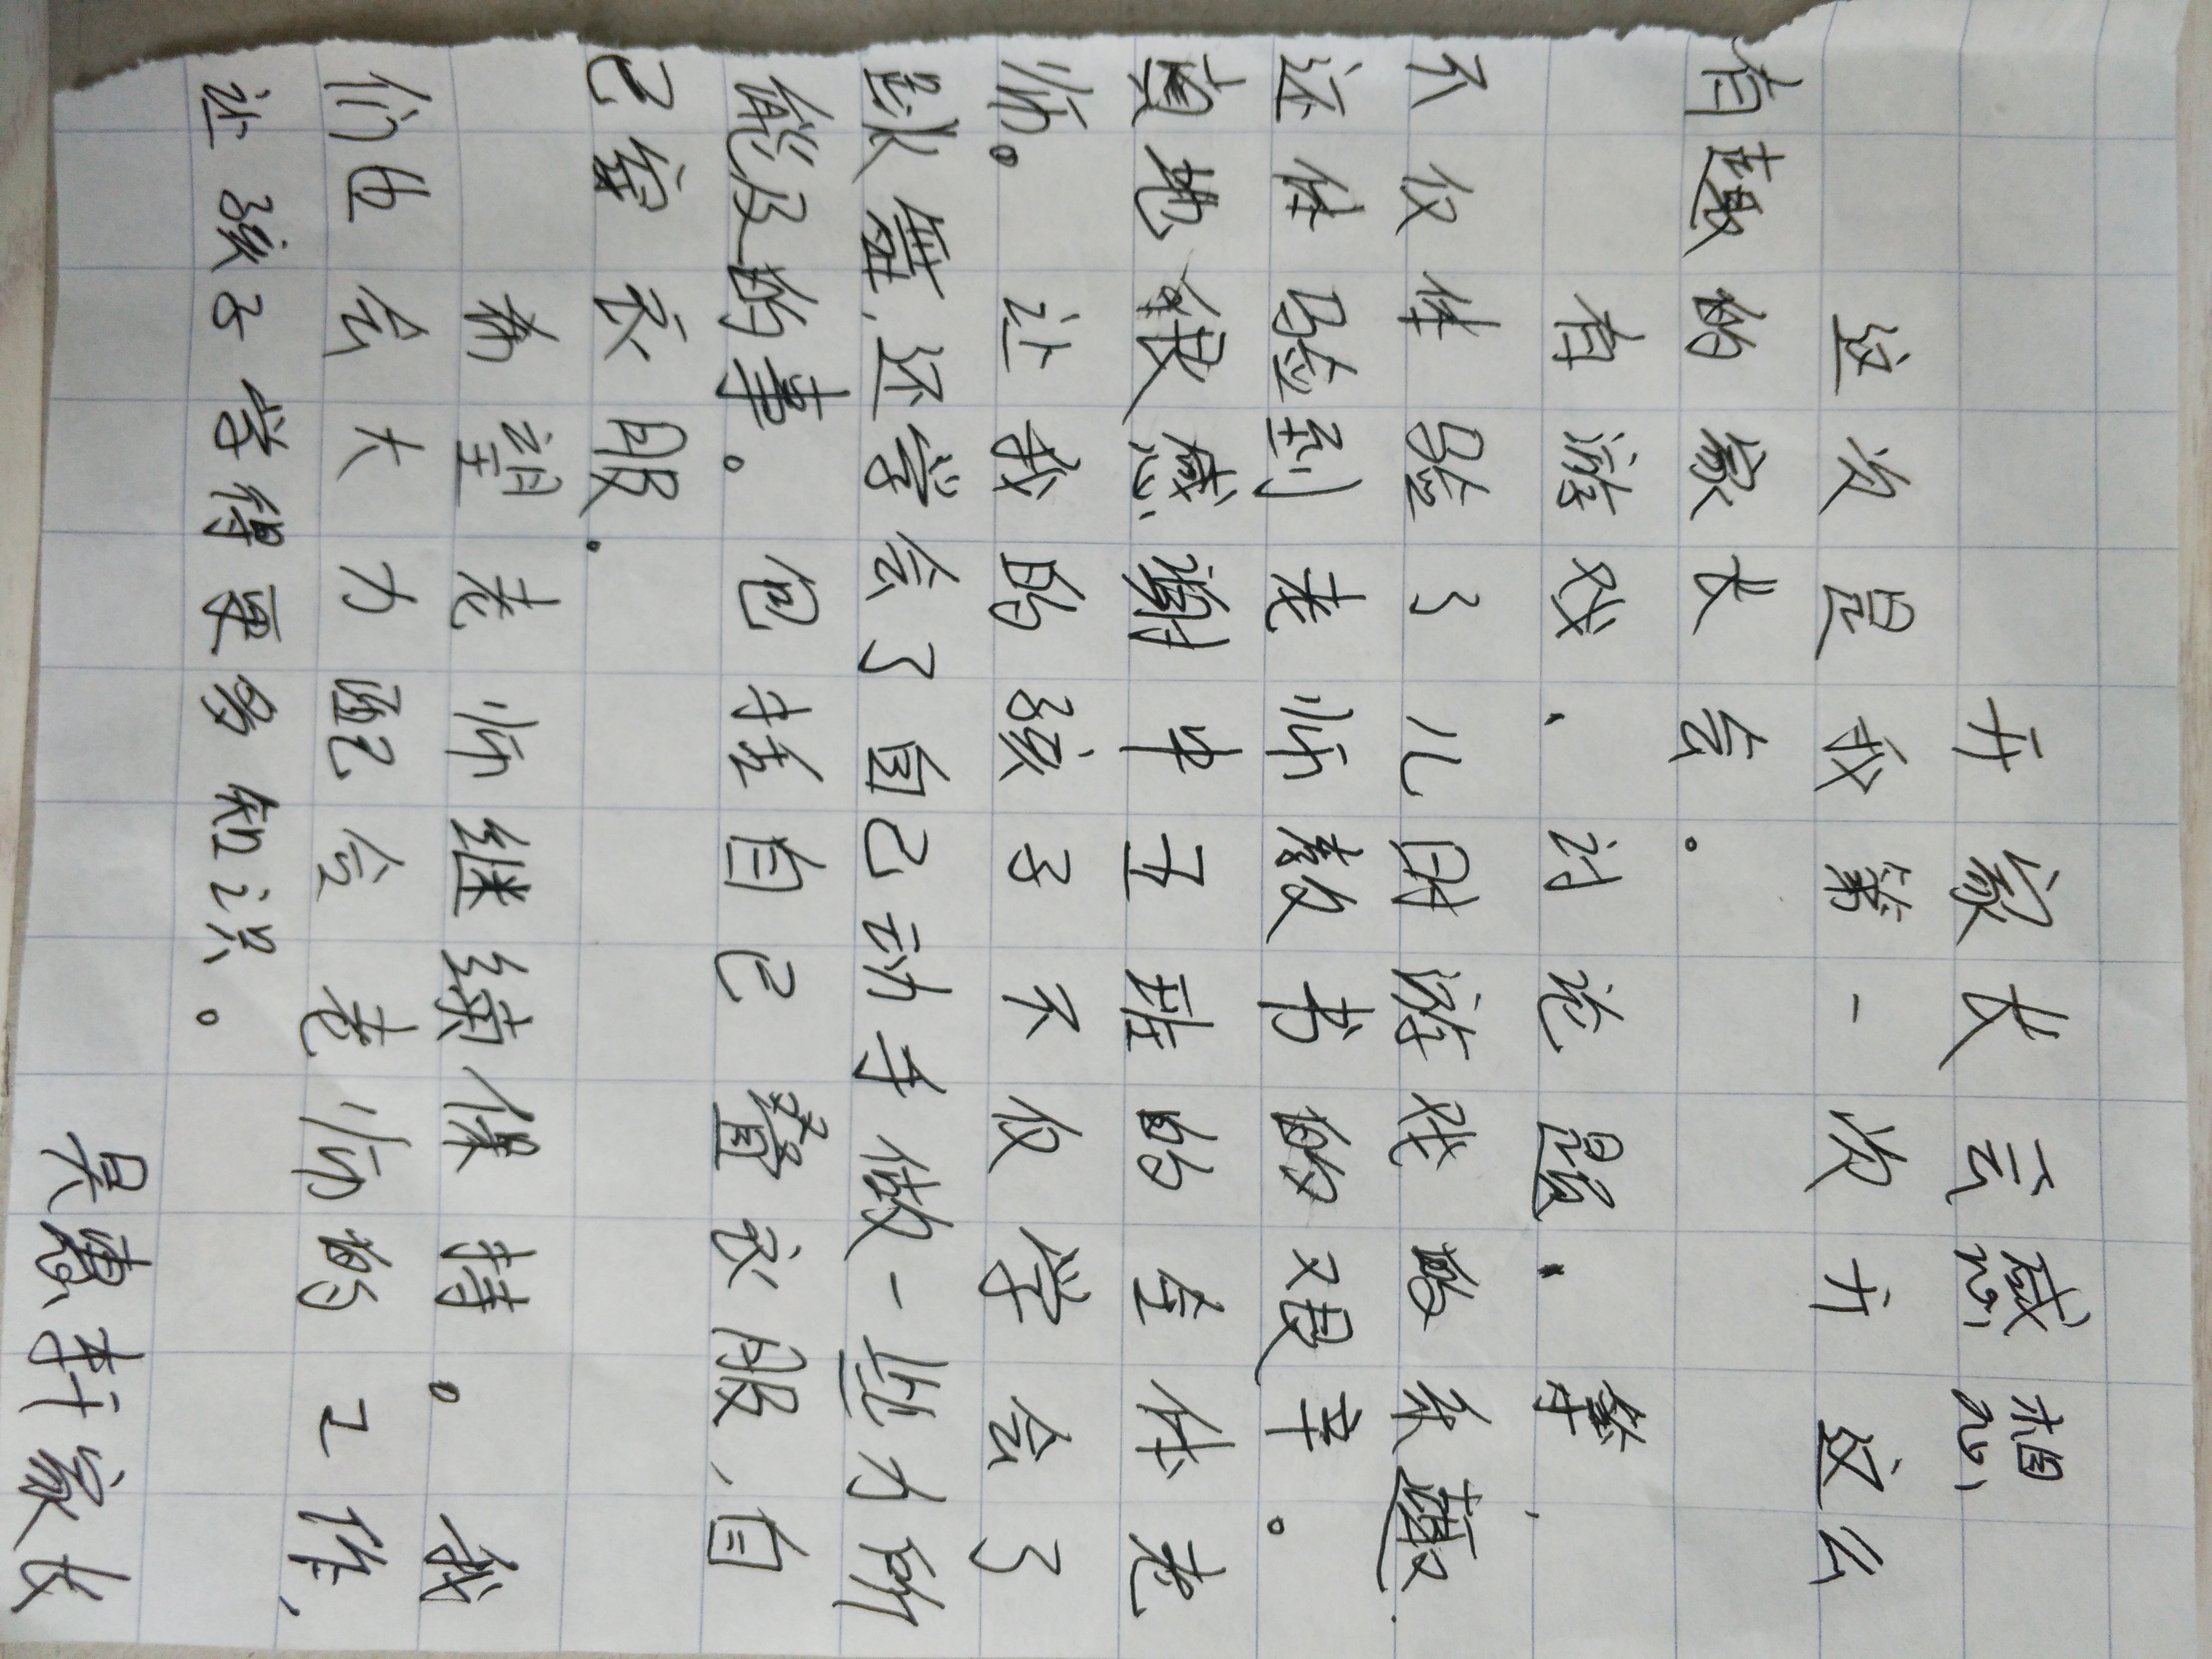 开家长云感想
这次是我第一次开这么
有趣的家长会。
有游戏、讨论题. 等,
不仅体验了儿时游戏的乐趣.
还体验到老师教书的艰辛。
真地很感谢中五班的全体老
师。让我的孩子不仅学会了
跳舞,还学会了自己动手做一些力所
能及的事。包括自己叠衣服,自
己穿衣服。
希望老师继续保持。我
们也会大力配合老师的工作,
让孩子学得更多知识。
吴慧轩家长